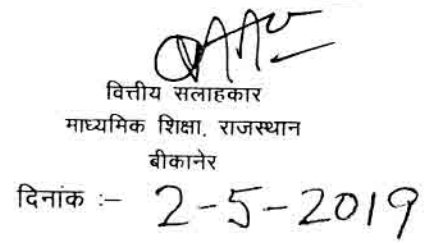 वित्तीय सलाहकार
माध्यमिक शिक्षा, राजस्थान
बीकानेर
दिनांक :– 2-5-2019